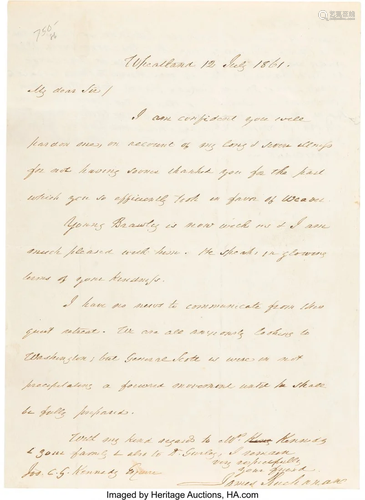 750/
Wheatland 12 July 1861.
My dear Sir/
I am confident you will
pardon me on account of my long & severe illness
for not having sooner thanked you for the part
which you so efficiently took in favor of
Young Brawley is now with us & I am
much pleased with him. He speaks in glowing
terms of your kindness.
I have no news to communicate from this
quiet retreat. We are all anxiously looking to
Washington; but General Scott is wise in not
precipitating a forward movement until he shall
be fully prepared.
With my kind regards to Mrs Kennedy
& your family & also to Dr Gurley, I remain
very respectfully
your friend
Jos. C. G. Kennedy Esquire
James Buchanan
Imaged by Heritage Auctions, HA.com